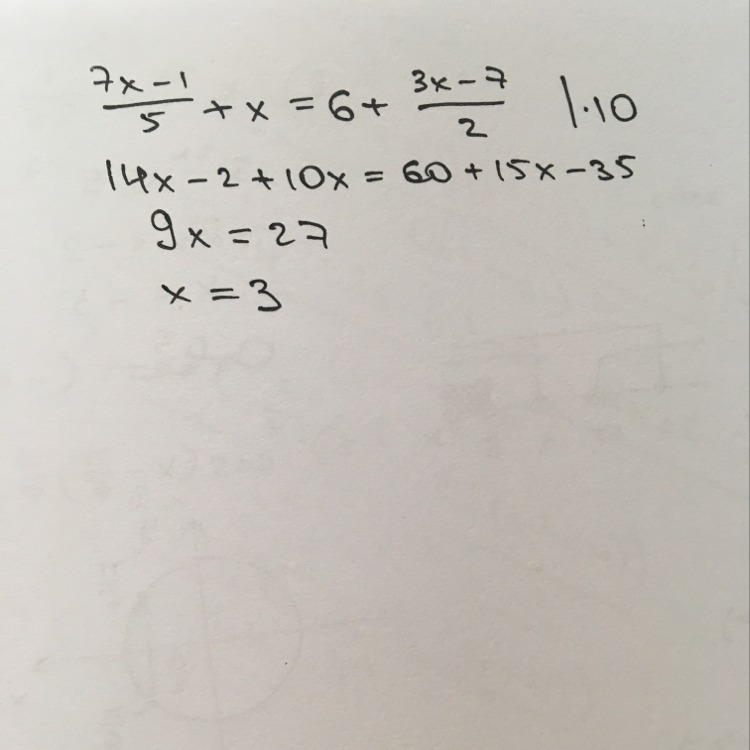 (7x-1)/5 + x = 6 + (3x-7)/2 |·10
14x - 2 + 10x = 60 + 15x - 35
9x = 27
x = 3